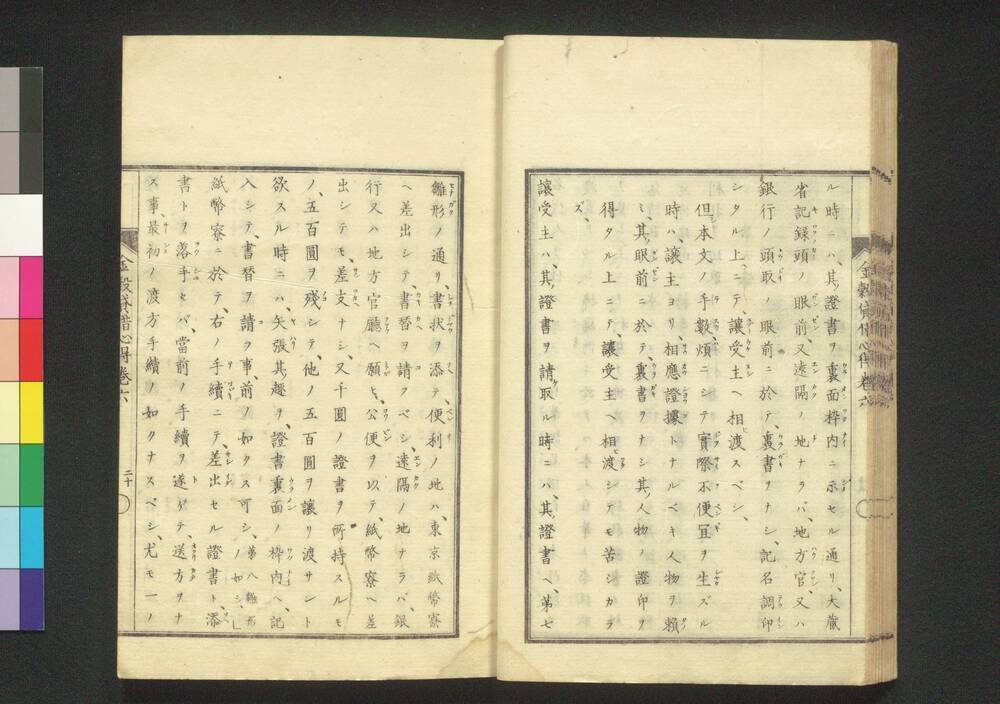 ル時ニハ、其證書ヲ、裏面枠内ニ示セル通リ、大藏
省記録頭ノ眼前、又遠隔ノ地ナラバ、地方官、又ハ
銀行ノ頭取ノ眼前ニ於テ、裏書ヲナシ、記名調印
シタル上ニテ、讓受主ヘ相渡スベシ、
但、本文ノ手數煩ニシテ實際不便冝ヲ生ズル
時ハ、讓主ヨリ、相應證據トナルベキ人物ヲ頼
ミ、其眼前ニ於テ、裏書ヲナシ、其人物ノ證印ヲ
得タル上ニテ、讓受主ヘ相渡シテモ苦シカラ
ズ、
讓受主ハ、其證書ヲ請取ル時ニハ、其證書ヘ、第七
雛形ノ通リ、書状ヲ添テ、便利ノ地ハ、東京紙幣寮
ヘ差出シテ、書替ヲ請フベシ、遠隔ノ地ナラバ、銀
行又ハ地方官廳ヘ願ヒ、公便ヲ以テ、紙幣寮ヘ差
出シテモ、差支ナシ、又千圓ノ證書ヲ所持スルモ
ノ、五百圓ヲ殘シテ、他ノ五百圓ヲ讓リ渡サント
欲スル時ニハ、矢張其趣ヲ、證書裏面ノ枠内ヘ、記
入シテ、書替ヲ請フ事、前ノ如クス可シ、第八雛形ノ如シ、
紙幣寮ニ於テ、右ノ手續ニテ、差出セル證書ト、添
書トヲ落手セバ、當前ノ手續ヲ遂ゲテ、送方ヲナ
ス事、最初ノ渡方手續ノ如クナスベシ、尤モ一ノ
金穀貸借心得巻六
二十